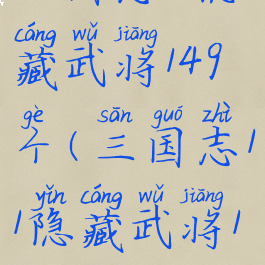 cáng wǔ jiāng
藏武将149
gè sān guó zhì
个(三国志1
yǐn cáng wǔ jiāng
1隐藏武将1